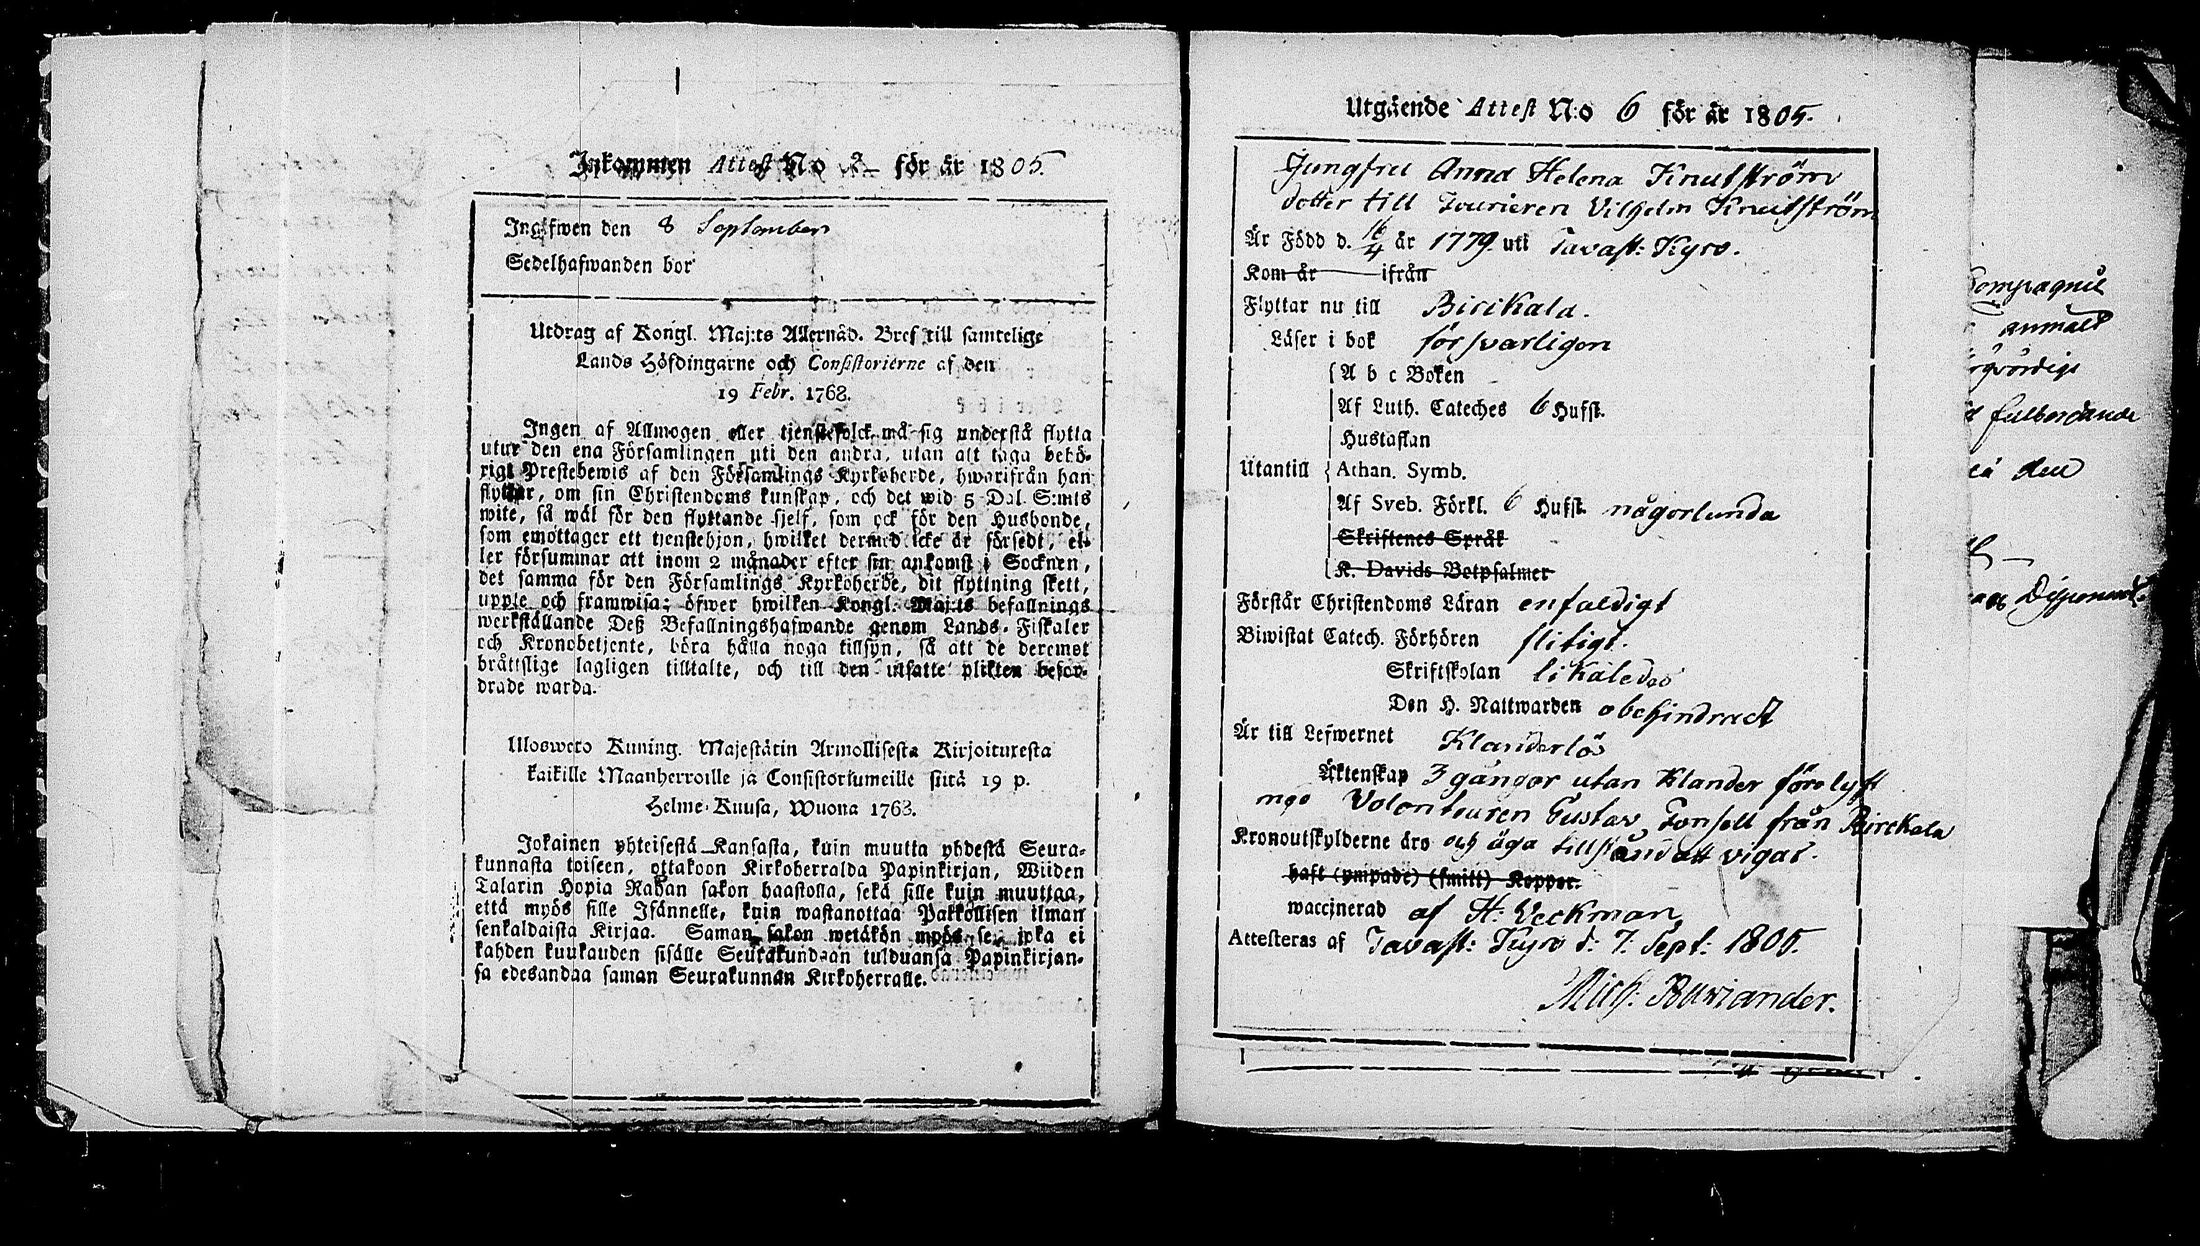 Inkommen Attest No 2 för år 1805.
Ingifwen den 8 September
Sedelhafwanden bor
Utdrag af Kongl. Maj:ts Allernåd. Bref till samtelige
Lands Höfdingarne och Consistorierne af den
19 Febr. 1768.
Ingen af Allmogen eller tjenstefolck må sig understå flytta
utur den ena Församlingen uti den andra, utan att taga behö-
rigt Prestebewis af den Församlings Kyrkoherde, hwarifrån han
flyttar, om sin Christendoms kunskap, och det wid 5 Dal. S:mts
wite, så wäl för den flyttande sjelf, som ock för den Husbonde,
som emottager ett tjenstehjon, hwilket dermed icke är försedt, el-
ler försummar att inom 2 månader efter sin ankomst i Socknen,
det samma för den Församlings Kyrkoherde, dit flyttning skett,
upple och framwisa; öfwer hwilken Kongl. Maj:ts befallnings
werkställande Deß Befallningshafwande genom Lands-Fiskaler
och Kronobetjente, böra hålla noga tillsyn, så att de deremot
bråttslige lagligen tilltalte, och till den utsatte plikten befor-
drade warda.
Uloswoto Kuning. Majestätin Armollisesta Kirjoituresta
kaikille Maanherroille ja Consistoriumeille siitä 19 p.
Helme-Kuusa, Wuona 1768.
Jokainen yhteisestä Kansasta, kuin muutta yhdestä Seura-
kunnasta toiseen, ottakoon Kirkoherralda Papinkirjan, Wiiden
Talarin Hopia Rahan sakon haastolla, sekä sille kuin muuttaa,
että myös sille Isännelle, kuin wastanottaa Palkollisen ilman
senkaldaista Kirjaa. Saman sakon wetäkön myös se, joka ei
kahden kuukauden sisälle Seurakundaan tulduansa Papinkirjan-
sa edesandaa saman Seurakunnan Kirkoherralle.
Utgående Attest N:o 6 för år 1805.
Jungfru Anna Helena Knutström
dotter till Fourieren Vilhelm Knutström
Är Född d. 16/4 år 1779 uti Tavast: Kyro.
Kom år ifrån
Flyttar nu till Birckala.
Läser i bok försvarligen
A b c Boken
Af Luth. Cateches 6 Hufst.
Hustaflan
Utantill Athan. Symb.
Af Sveb. Förkl. 6 Hufst. någorlunda
Skriftenes Språk
K. Davids Botpsalmer
Förstår Christendoms Läran enfaldigt
Biwistat Catech. Förhören flitigt.
Skriftskolan likaledes
Den H. Nattwarden obehindradt
Är till Lefwernet Klanderlös
Äktenskap 3 gångor utan Klander förelyst
med Volonteuren Gustav Tonsell från Birckala
Kronoutskylderne äro och äga tillstånd att vigas.
haft (ympade) (smitt) Koppor.
waccinerad af H: Veckman
Attesteras af Tavast: Kyro d: 7. Sept: 1805.
Mich. Buriander.
Compagnie
anmält
fulbordande
den